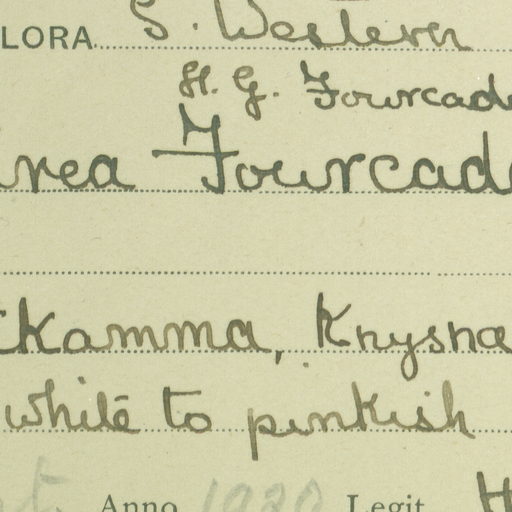 LORA S. Western
H. G. Fourcad
rea Fourcad
Kamma, Knysna
white to pinkish
Anno 1930 Legit H